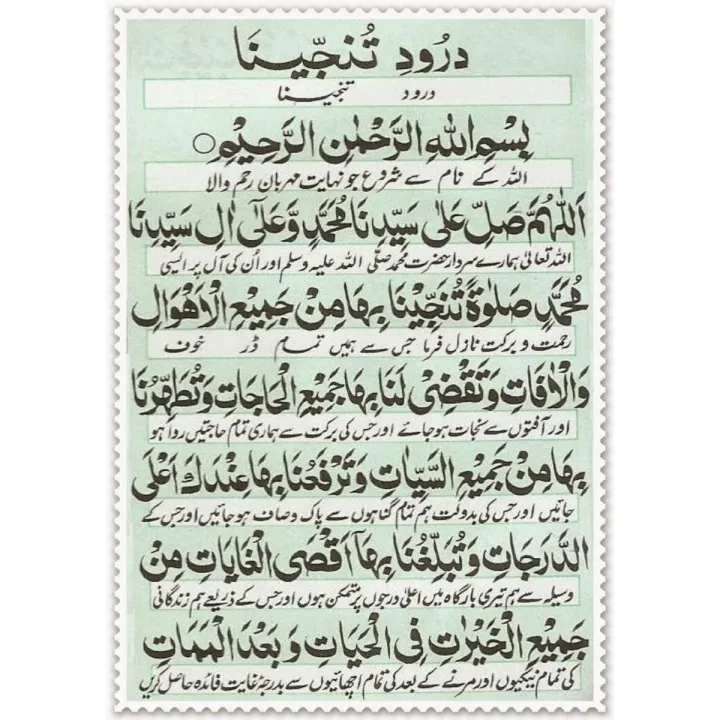 درُودِ تُنَجِّينَا
درود تنجینا
بِسْمِ اللهِ الرَّحْمٰنِ الرَّحِيْمِ ○
اللہ کے نام سے شروع جو نہایت مہربان رحم والا
اَللّٰهُمَّ صَلِّ عَلٰى سَيِّدِنَا مُحَمَّدٍ وَّعَلٰٓى اٰلِ سَيِّدِنَا
اللہ تعالیٰ ہمارے سردار حضرت محمد صلّی اللہ علیہ وسلم اور اُن کی آل پر ایسی
مُحَمَّدٍ صَلٰوةً تُنَجِّيْنَا بِهَا مِنْ جَمِيْعِ الْاَهْوَالِ
رحمت و برکت نازل فرما جس سے ہمیں تمام ڈر خوف
وَالْاٰفَاتِ وَتَقْضِىْ لَنَا بِهَا جَمِيْعَ الْحَاجَاتِ وَتُطَهِّرُنَا
اور آفتوں سے نجات ہو جائے اور جس کی برکت سے ہماری تمام حاجتیں روا ہو
بِهَا مِنْ جَمِيْعِ السَّيِّاٰتِ وَتَرْفَعُنَا بِهَا عِنْدَكَ اَعْلَى
جائیں اور جس کی بدولت ہم تمام گناہوں سے پاک و صاف ہو جائیں اور جس کے
الدَّرَجَاتِ وَتُبَلِّغُنَا بِهَآ اَقْصَى الْغَايَاتِ مِنْ
وسیلہ سے ہم تیری بارگاہ میں اعلیٰ درجوں پر متمکن ہوں اور جس کے ذریعے ہم زندگانی
جَمِيْعِ الْخَيْرٰتِ فِى الْحَيَاتِ وَبَعْدَ الْمَمَاتِ
کی تمام نیکیوں اور مرنے کے بعد کی تمام اچھائیوں سے بدرجۂ غایت فائدہ حاصل کریں